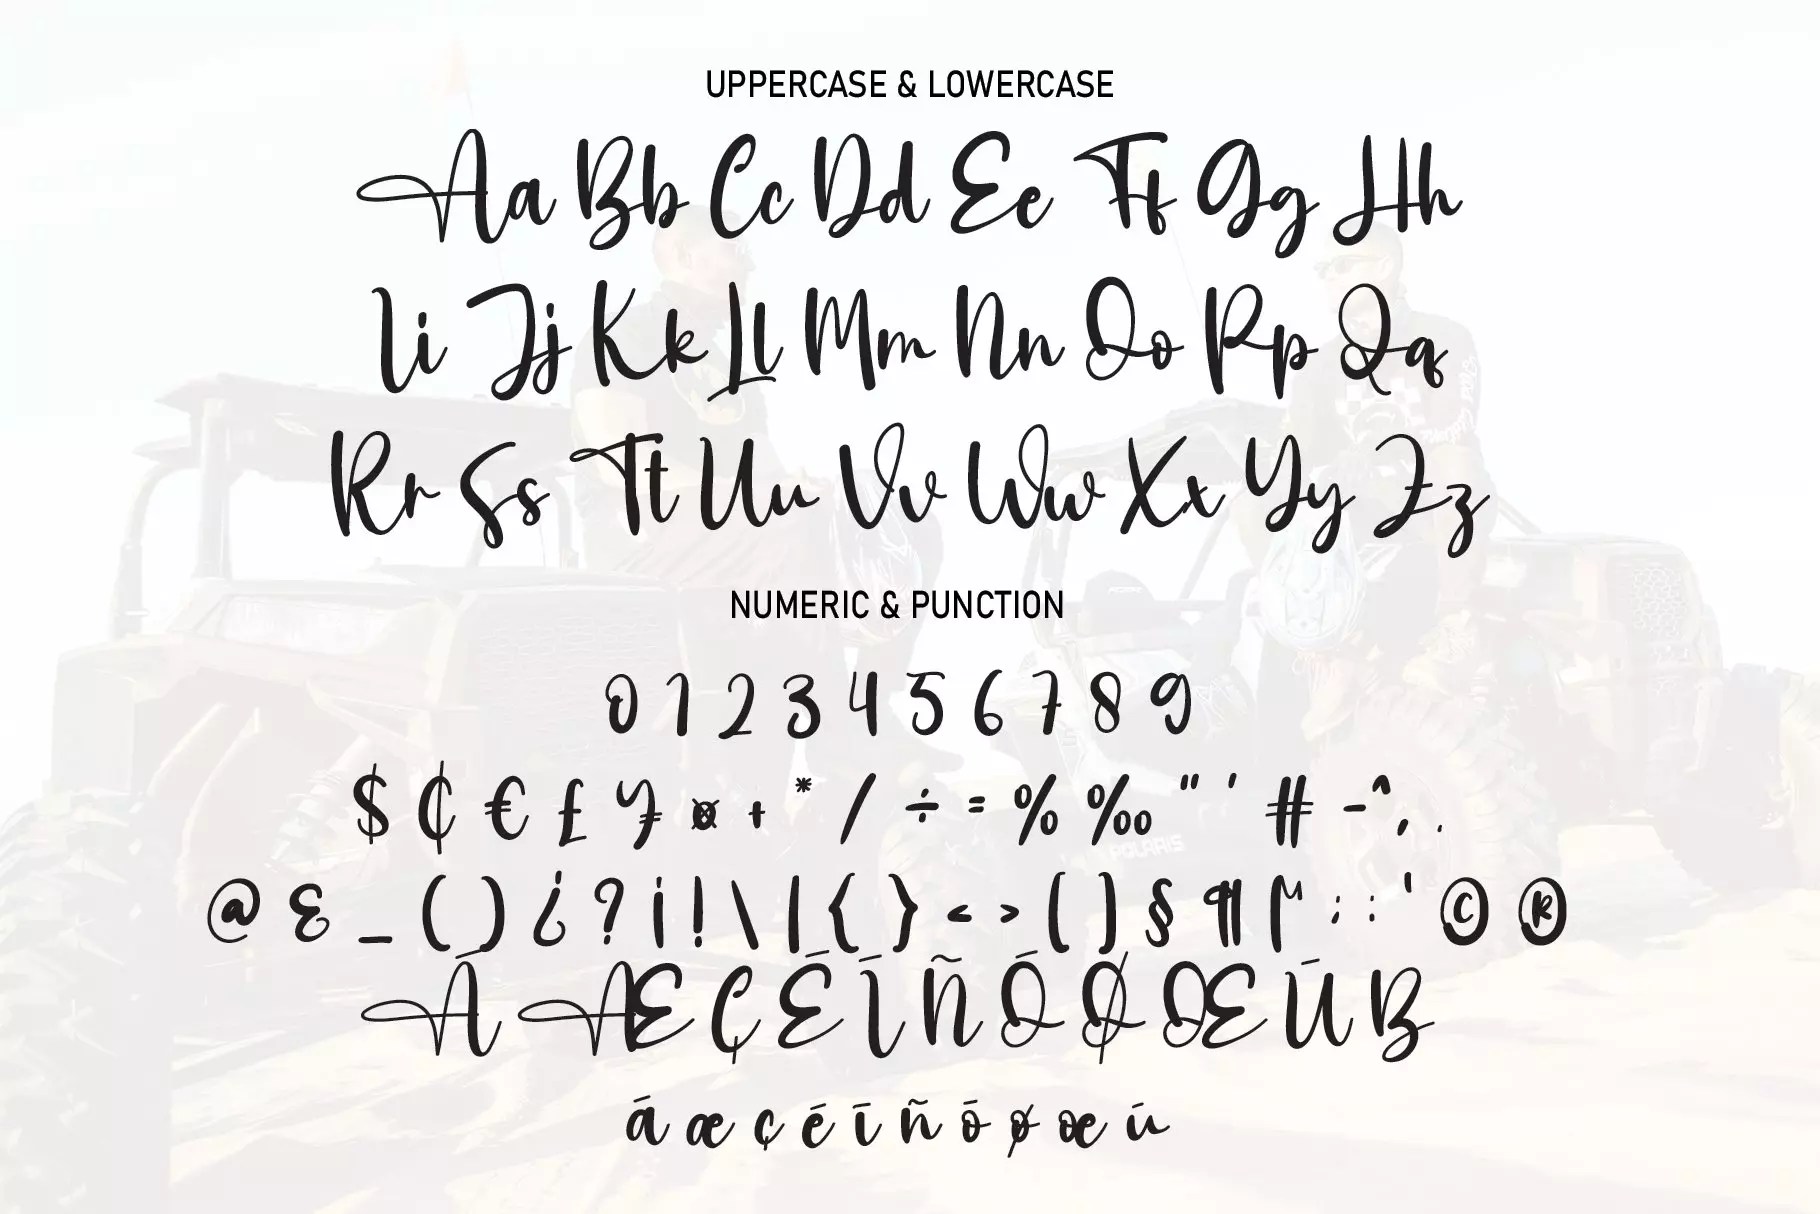 UPPERCASE & LOWERCASE
Aa Bb Cc Dd Ee Ff Gg Hh
Ii Jj Kk Ll Mm Nn Oo Pp Qq
Rr Ss Tt Uu Vv Ww Xx Yy Zz
NUMERIC & PUNCTION
0 1 2 3 4 5 6 7 8 9
$ ¢ € £ ¥ ¤ + * / ÷ = % ‰ " ' # - ^ , .
@ & _ ( ) ¿ ? ¡ ! \ | { } < > [ ] § ¶ µ ; : ' © ®
Á Æ Ç É Ī Ñ Ō Ø Œ Ū ß
á æ ç é ī ñ ó ø œ ú
POLARIS